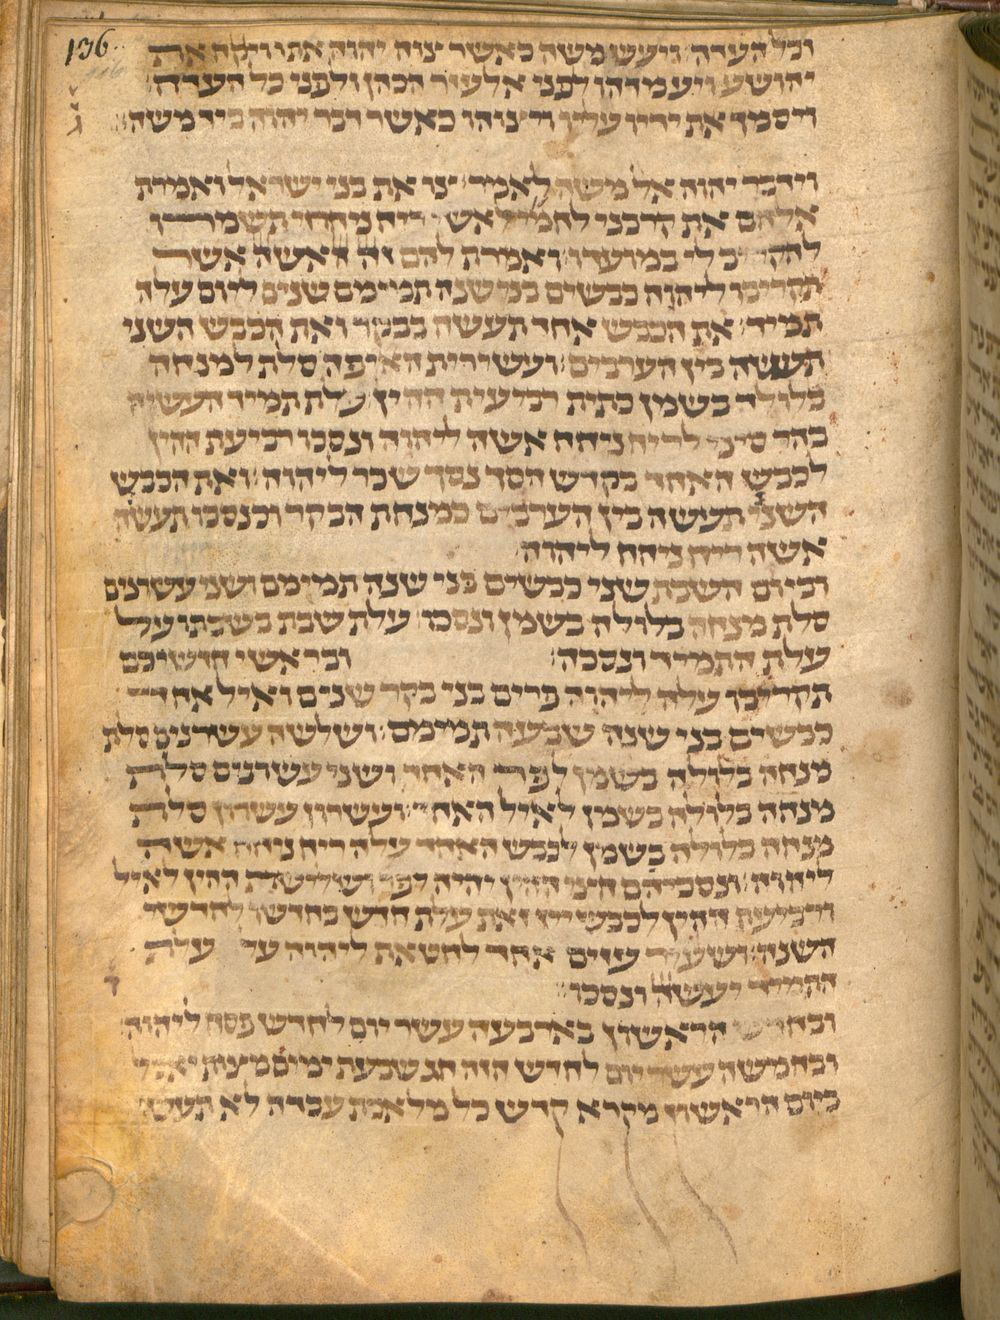 136
וכל העדה: ויעש משה כאשר צוה יהוה אתו ויקח את
יהושע ויעמדהו לפני אלעזר הכהן ולפני כל העדה:
ויסמך את ידיו עליו ויצוהו כאשר דבר יהוה ביד משה:
וידבר יהוה אל משה לאמר: צו את בני ישראל ואמרת
אלהם את קרבני לחמי לאשי ריח ניחחי תשמרו
להקריב לי במועדו: ואמרת להם זה האשה אשר
תקריבו ליהוה כבשים בני שנה תמימם שנים ליום עלה
תמיד: את הכבש אחד תעשה בבקר ואת הכבש השני
תעשה בין הערבים: ועשירית האיפה סלת למנחה
בלולה בשמן כתית רביעית ההין: עלת תמיד העשיה
בהר סיני לריח ניחח אשה ליהוה: ונסכו רביעת ההין
לכבש האחד בקדש הסך נסך שכר ליהוה: ואת הכבש
השני תעשה בין הערבים כמנחת הבקר וכנסכו תעשה
אשה ריח ניחח ליהוה:
וביום השבת שני כבשים בני שנה תמימם ושני עשרנים
סלת מנחה בלולה בשמן ונסכו: עלת שבת בשבתו על
עלת התמיד ונסכה: ובראשי חדשיכם
תקריבו עלה ליהוה פרים בני בקר שנים ואיל אחד
כבשים בני שנה שבעה תמימם: ושלשה עשרנים סלת
מנחה בלולה בשמן לפר האחד ושני עשרנים סלת
מנחה בלולה בשמן לאיל האחד: ועשרון עשרון סלת
מנחה בלולה בשמן לכבש האחד עלה ריח ניחח אשה
ליהוה: ונסכיהם חצי ההין יהיה לפר ושלישת ההין לאיל
ורביעת ההין לכבש יין זאת עלת חדש בחדשו לחדשי
השנה: ושעיר עזים אחד לחטאת ליהוה על עלת
התמיד יעשה ונסכו:
ובחדש הראשון בארבעה עשר יום לחדש פסח ליהוה:
ובחמשה עשר יום לחדש הזה חג שבעת ימים מצות יאכל:
ביום הראשון מקרא קדש כל מלאכת עבדה לא תעשו: